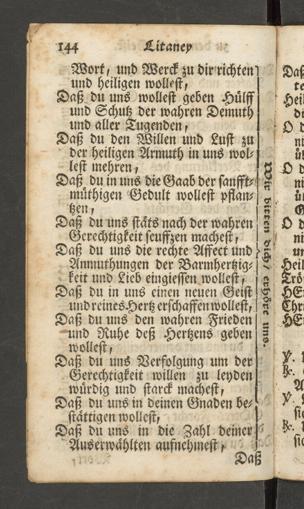 144 Litaney
Wort, und Werck zu dir richten
und heiligen wollest,
Daß du uns wollest geben Hülff
und Schutz der wahren Demuth
und aller Tugenden,
Daß du den Willen und Lust zu
der heiligen Armuth in uns wol-
lest mehren,
Daß du in uns die Gaab der sanfft-
müthigen Gedult wollest pflan-
tzen,
Daß du uns stäts nach der wahren
Gerechtigkeit seuffzen machest,
Daß du uns die rechte Affect und
Anmuthungen der Barmhertzig-
keit und Lieb eingiessen wollest,
Daß du in uns einen neuen Geist
und reines Hertz erschaffen wollest,
Daß du uns den wahren Frieden
und Ruhe deß Hertzens geben
wollest,
Daß du uns Verfolgung um der
Gerechtigkeit willen zu leyden
würdig und starck machest,
Daß du uns in deinen Gnaden be-
stättigen wollest,
Daß du uns in die Zahl deiner
Auserwählten aufnehmest,
Daß
Wir bitten dich/ erhöre uns.